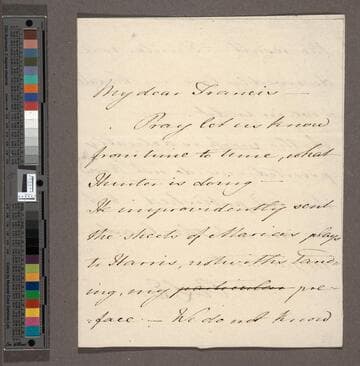 My dear Francis —
Pray let us know
from time to time, what
Hunter is doing —
He improvidently sent
the sheets of Marica's plays
to Harris, notwithstand=
ing, my particular pre=
=face. — We do not know